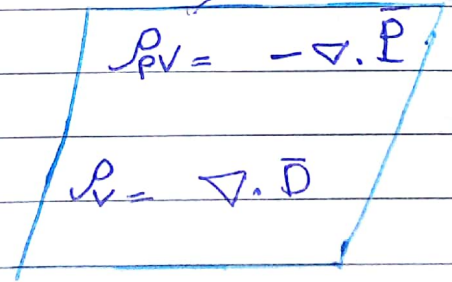 ρpv = -∇. P̄
ρv = ∇. D̄